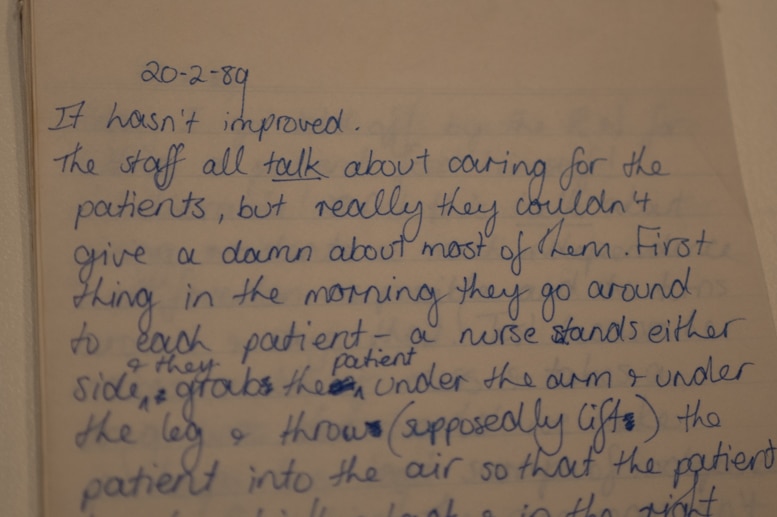 20-2-89
It hasn't improved.
The staff all talk about caring for the
patients, but really they couldn't
give a damn about most of them. First
thing in the morning they go around
to each patient - a nurse stands either
& they patient
side, & grabs the under the arm & under
the leg & throws (supposedly lifts) the
patient into the air so that the patient
in the right